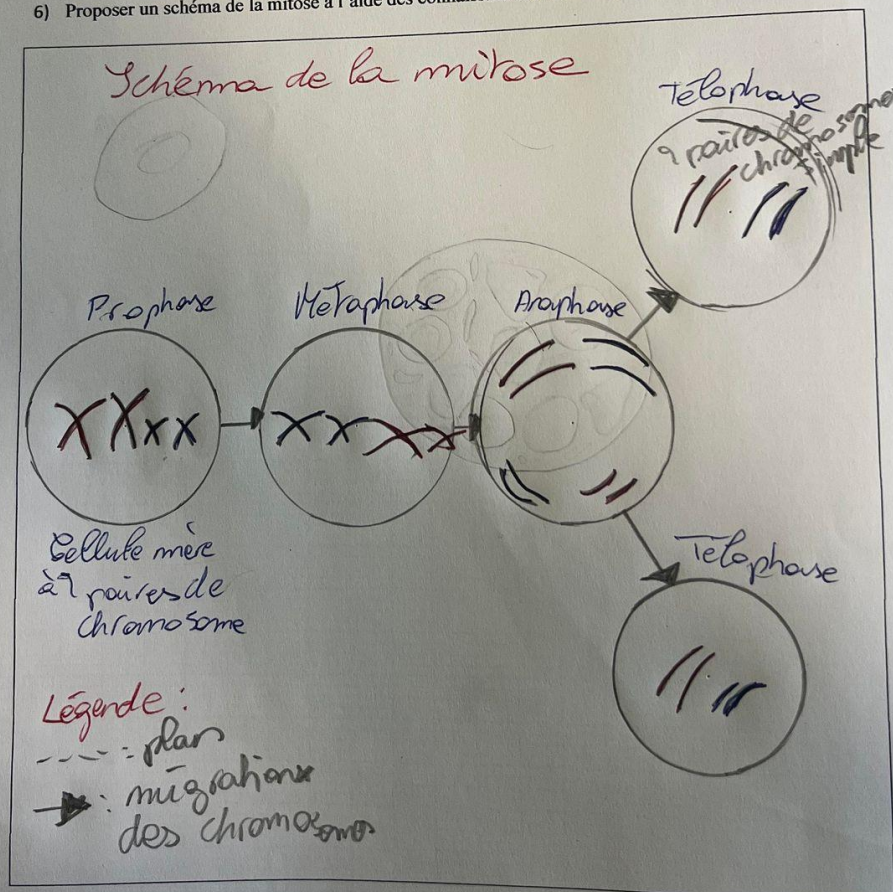 6) Proposer un schéma de la mitose à l'aide des
Schéma de la mitose
Télophase
2 paires de
chromosome
simple
Prophase
Métaphase
Anaphase
Cellule mère
à 2 paires de
chromosome
Télophase
Légende :
---- : plan
→ : migrations
des chromosomes